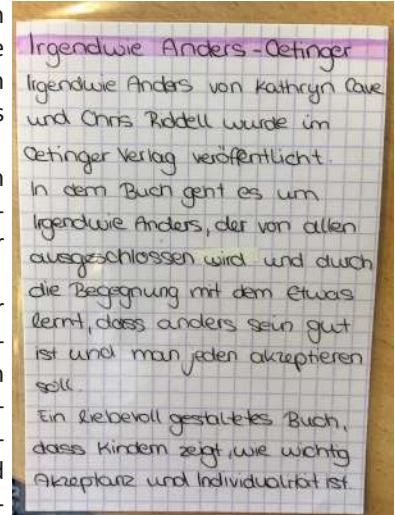 Irgendwie Anders - Oetinger
Irgendwie Anders von Kathryn Cave
und Chris Riddell wurde im
Oetinger Verlag veröffentlicht.
In dem Buch geht es um
Irgendwie Anders, der von allen
ausgeschlossen wird und durch
die Begegnung mit dem Etwas
lernt, dass anders sein gut
ist und man jeden akzeptieren
soll.
Ein liebevoll gestaltetes Buch,
dass Kindern zeigt, wie wichtig
Akzeptanz und Individualität ist.